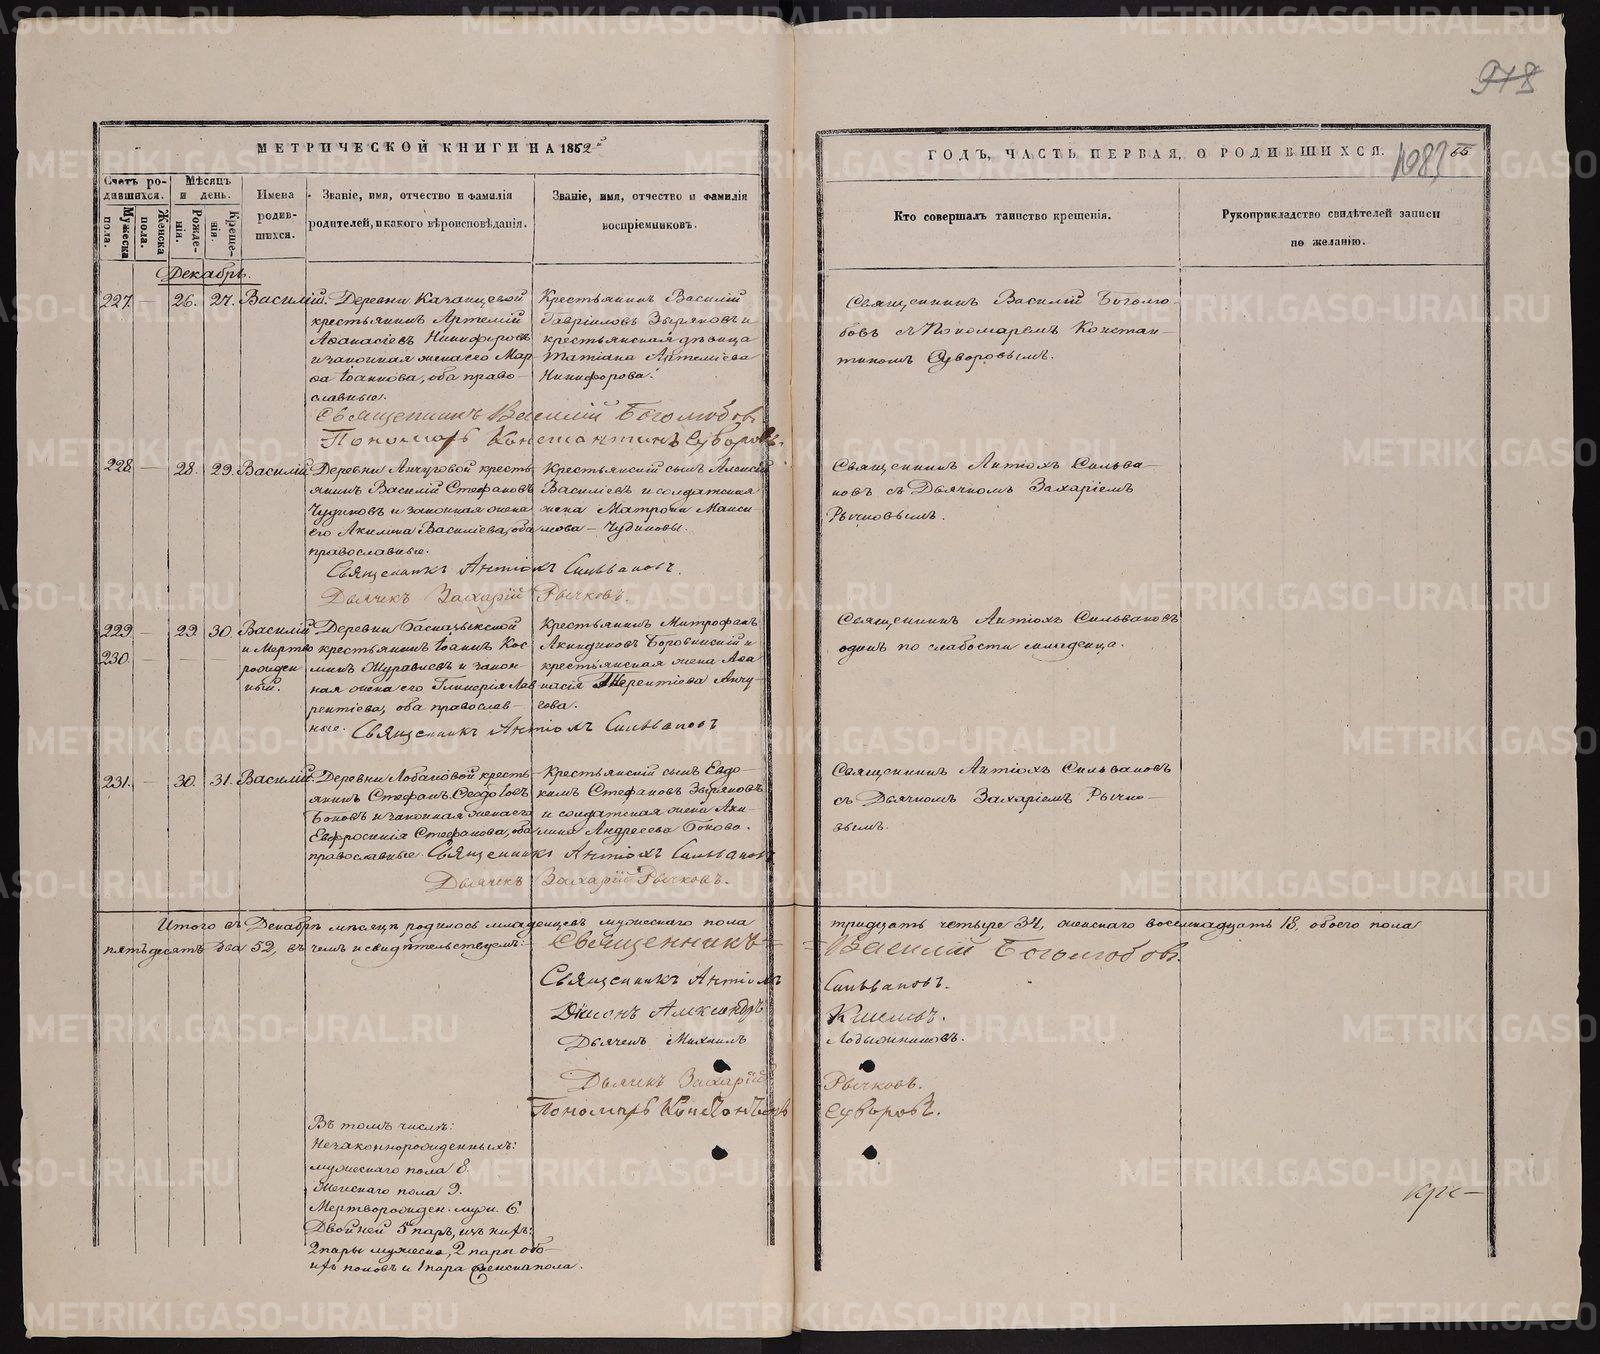 978
МЕТРИЧЕСКОЙ КНИГИ НА 1852й
ГОДЪ, ЧАСТЬ ПЕРВАЯ, О РОДИВШИХСЯ.
1083
Счетъ родившихся.
Мужеска пола.
Женска пола.
Мѣсяцъ и день.
Рожденія.
Крещенія.
Имена родившихся.
Званіе, имя, отчество и фамилія
родителей, и какого вѣроисповѣданія.
Званіе, имя, отчество и фамилія
воспріемниковъ.
Кто совершалъ таинство крещенія.
Рукоприкладство свидѣтелей записи
по желанію.
Декабрь.
227. — 26. 27. Василій.
Деревни Казанцевой
крестьянинъ Артемій
Аѳанасіевъ Никифоровъ
и законная жена его Мар-
ѳа Іоаннова, оба право-
славные.
Крестьянинъ Василій
Гавріиловъ Зыряновъ и
крестьянская дѣвица
Татіана Артеміева
Никифорова.
Священникъ Василій Боголю-
бовъ съ Пономаремъ Констан-
тиномъ Суворовымъ.
Священникъ Василій Боголюбовъ
Пономарь Константинъ Суворовъ.
228. — 28. 29. Василій
Деревни Анчуговой кресть-
янинъ Василій Стефановъ
Чудиновъ и законная жена
его Акилина Василіева, оба
православные.
Крестьянскій сынъ Алексій
Василіевъ и солдатская
жена Матрона Макси-
мова — Чудиновы.
Священникъ Антіохъ Сильва-
новъ съ Дьячкомъ Захаріемъ
Рычковымъ.
Священникъ Антіохъ Сильвановъ.
Дьячекъ Захарій Рычковъ.
229 — 29. 30. Василій
230. — — — и Мертво
рожден
ный.
Деревни
крестьянинъ Іоаннъ Кос
минъ Журавлевъ и закон-
ная жена его Гликерія Лав
рентіева, оба православ-
ные.
Крестьянинъ Митрофанъ
Акиндиновъ Боровинскій и
крестьянская жена Аѳа
насія Терентіева Анчу-
гова.
Священникъ Антіохъ Сильвановъ
одинъ по слабости младенца.
Священникъ Антіохъ Сильвановъ
231. — 30. 31. Василій.
Деревни Лобановой кресть-
янинъ Стефанъ Ѳеодотовъ
Боковъ и законная жена его
Евфросинія Стефанова, оба
православные.
Крестьянскій сынъ Евдо-
кимъ Стефановъ Зыряновъ
и солдатская жена Аки-
лина Андреева Бокова.
Священникъ Антіохъ Сильвановъ
съ Дьячкомъ Захаріемъ Рычко-
вымъ.
Священникъ Антіохъ Сильвановъ
Дьячекъ Захарій Рычковъ.
Итого въ Декабрѣ мѣсяцѣ родилось младенцевъ мужескаго пола тридцать четыре 34, женскаго восемнадцать 18, обоего пола
пятьдесятъ два 52, въ чемъ и свидѣтельствуемъ: Священникъ = = Василій Боголюбовъ.
Священникъ Антіохъ Сильвановъ.
Діаконъ Александръ
Дьячекъ Михаилъ Ладыжниковъ.
Дьячекъ Захарій Рычковъ.
Пономарь Константинъ Суворовъ.
Въ томъ числѣ:
Незаконнорожденныхъ:
мужескаго пола 8.
Женскаго пола 9.
Мертворожден. муж. 6
Двойней 5 паръ, изъ нихъ:
2 пары мужеска, 2 пары обо-
ихъ половъ и 1 пара женска пола.
METRIKI.GASO-URAL.RU